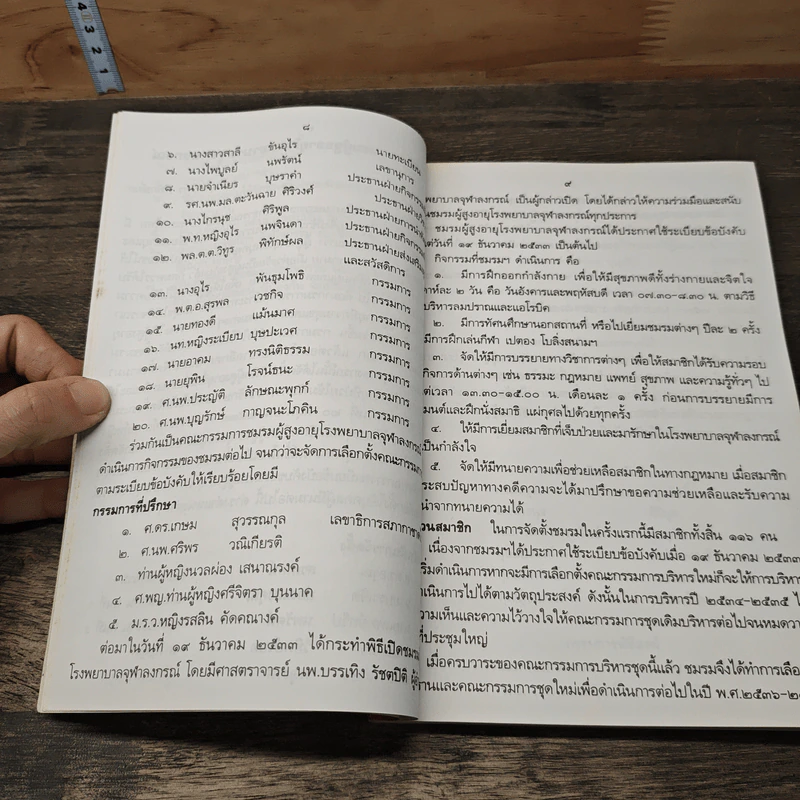 ๘
๖. นางสาวสาลี ขันอุไร นายทะเบียน
๗. นางไพบูลย์ นพรัตน์ เลขานุการ
๘. นายจำเนียร บุษราคำ ประธานฝ่ายกิจกรรม
๙. รศ.นพ.มล.ตะวันฉาย ศิริวงศ์ ประธานฝ่าย
๑๐. นางไกรนุช ศิริพูล ประธานฝ่าย
๑๑. พ.ท.หญิงอุไร นพจินดา ประธานฝ่าย
๑๒. พล.ต.ต.วิทูร พิทักษ์ผล ประธานฝ่ายส่งเสริม
และสวัสดิการ
๑๓. นางอุไร พันธุมโพธิ กรรมการ
๑๔. พ.ต.อ.สุรพล เวชกิจ กรรมการ
๑๕. นายทองดี แม้นมาศ กรรมการ
๑๖. นท.หญิงระเบียบ บุษปะเวศ กรรมการ
๑๗. นายอาคม ทรงนิติธรรม กรรมการ
๑๘. นายยุพิน โรจน์ธนะ กรรมการ
๑๙. ศ.นพ.ประญัติ ลักษณะพุกก์ กรรมการ
๒๐. ศ.นพ.บุญรักษ์ กาญจนะโภคิน กรรมการ
ร่วมกันเป็นคณะกรรมการชมรมผู้สูงอายุโรงพยาบาลจุฬาลงกรณ์
ดำเนินการกิจกรรมของชมรมต่อไป จนกว่าจะจัดการเลือกตั้งคณะกรรมการ
ตามระเบียบข้อบังคับให้เรียบร้อยโดยมี
กรรมการที่ปรึกษา
๑. ศ.ดร.เกษม สุวรรณกุล เลขาธิการสภากาชาด
๒. ศ.นพ.ศริพร วณิเกียรติ
๓. ท่านผู้หญิงนวลผ่อง เสนาณรงค์
๔. ศ.พญ.ท่านผู้หญิงศรีจิตรา บุนนาค
๕. ม.ร.ว.หญิงรสลิน คัคคณางค์
ต่อมาในวันที่ ๑๙ ธันวาคม ๒๕๓๓ ได้กระทำพิธีเปิดชมรม
โรงพยาบาลจุฬาลงกรณ์ โดยมีศาสตราจารย์ นพ.บรรเทิง รัชตปิติ
๙
พยาบาลจุฬาลงกรณ์ เป็นผู้กล่าวเปิด โดยได้กล่าวให้ความร่วมมือและสนับ
นชมรมผู้สูงอายุโรงพยาบาลจุฬาลงกรณ์ทุกประการ
ชมรมผู้สูงอายุโรงพยาบาลจุฬาลงกรณ์ได้ประกาศใช้ระเบียบข้อบังคับ
ต่วันที่ ๑๙ ธันวาคม ๒๕๓๓ เป็นต้นไป
กิจกรรมที่ชมรมฯ ดำเนินการ คือ
๑. มีการฝึกออกกำลังกาย เพื่อให้มีสุขภาพดีทั้งร่างกายและจิตใจ
าห์ละ ๒ วัน คือ วันอังคารและพฤหัสบดี เวลา ๐๗.๓๐-๘.๓๐ น. ตามวิธี
บริหารลมปราณและแอโรบิค
๒. มีการทัศนศึกษานอกสถานที่ หรือไปเยี่ยมชมรมต่างๆ ปีละ ๒ ครั้ง
มีการฝึกเล่นกีฬา เปตอง โบลิ่งสนามฯ
๓. จัดให้มีการบรรยายทางวิชาการต่างๆ เพื่อให้สมาชิกได้รับความรอบ
กิจการด้านต่างๆ เช่น ธรรมะ กฎหมาย แพทย์ สุขภาพ และความรู้ทั่วๆ ไป
ต่เวลา ๑๓.๓๐-๑๕.๐๐ น. เดือนละ ๑ ครั้ง ก่อนการบรรยายมีการ
มนต์และฝึกนั่งสมาธิ แผ่กุศลไปด้วยทุกครั้ง
๔. ให้มีการเยี่ยมสมาชิกที่เจ็บป่วยและมารักษาในโรงพยาบาลจุฬาลงกรณ์
เป็นกำลังใจ
๕. จัดให้มีทนายความเพื่อช่วยเหลือสมาชิกในทางกฎหมาย เมื่อสมาชิก
ระสบปัญหาทางคดีความจะได้มาปรึกษาขอความช่วยเหลือและรับความ
นำจากทนายความได้
วนสมาชิก ในการจัดตั้งชมรมในครั้งแรกนี้มีสมาชิกทั้งสิ้น ๑๑๖ คน
เนื่องจากชมรมฯได้ประกาศใช้ระเบียบข้อบังคับเมื่อ ๑๙ ธันวาคม ๒๕๓๓
ริ่มดำเนินการหากจะมีการเลือกตั้งคณะกรรมการบริหารใหม่ก็จะให้การบริหาร
ำเนินการไปได้ตามวัตถุประสงค์ ดังนั้นในการบริหารปี ๒๕๓๔-๒๕๓๕
ความเห็นและความไว้วางใจให้คณะกรรมการชุดเดิมบริหารต่อไปจนหมดวา
ที่ประชุมใหญ่
เมื่อครบวาระของคณะกรรมการบริหารชุดนี้แล้ว ชมรมจึงได้ทำการเลือก
งานและคณะกรรมการชุดใหม่เพื่อดำเนินการต่อไปในปี พ.ศ.๒๕๓๖-๒